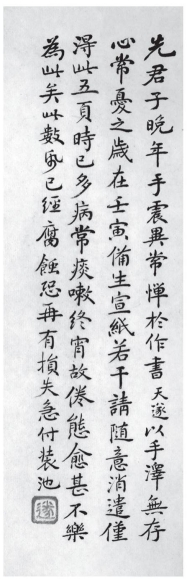 先君子晚年手震異常憚於作書天遂以手澤無存
心常憂之歲在壬寅備生宣紙若干請随意消遣僅
得此五頁時已多病常痰嗽終宵故倦態愈甚不樂
為此矣此數帋已經腐蝕恐再有損失急付裝池
遂